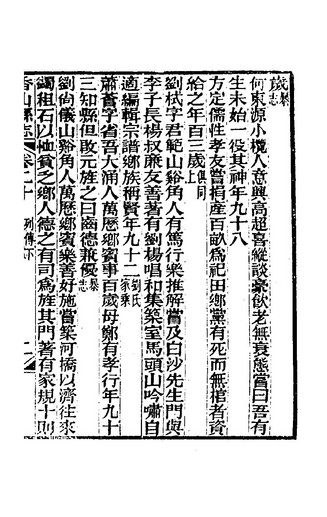 歲暴志
何東源小欖人意興高超喜縱談豪飲老無衰態嘗曰吾有
生未始一役其神年九十八
方定儒性孝友嘗捐產百畝爲祀田鄉黨有死而無棺者資
給之年百三歲上俱同
劉栻字君範山谿角人有篤行樂推解嘗及白沙先生門與
李子長楊叔廉友善著有劉楊唱和集築室馬頭山吟嘯自
適編輯宗譜鄉族稱賢年九十二劉氏家乘
蕭薈字省吾大涌人萬歷鄉賓事百歲母鄭有孝行年九十
三知縣但啟元旌之曰齒德兼優暴志
劉尚儀山谿角人萬歷鄉賓樂善好施嘗築河橋以濟往來
蠲租石以恤貧乏鄉人德之有司爲旌其門著有家規十則
香山縣志 卷二十 列傳下 二